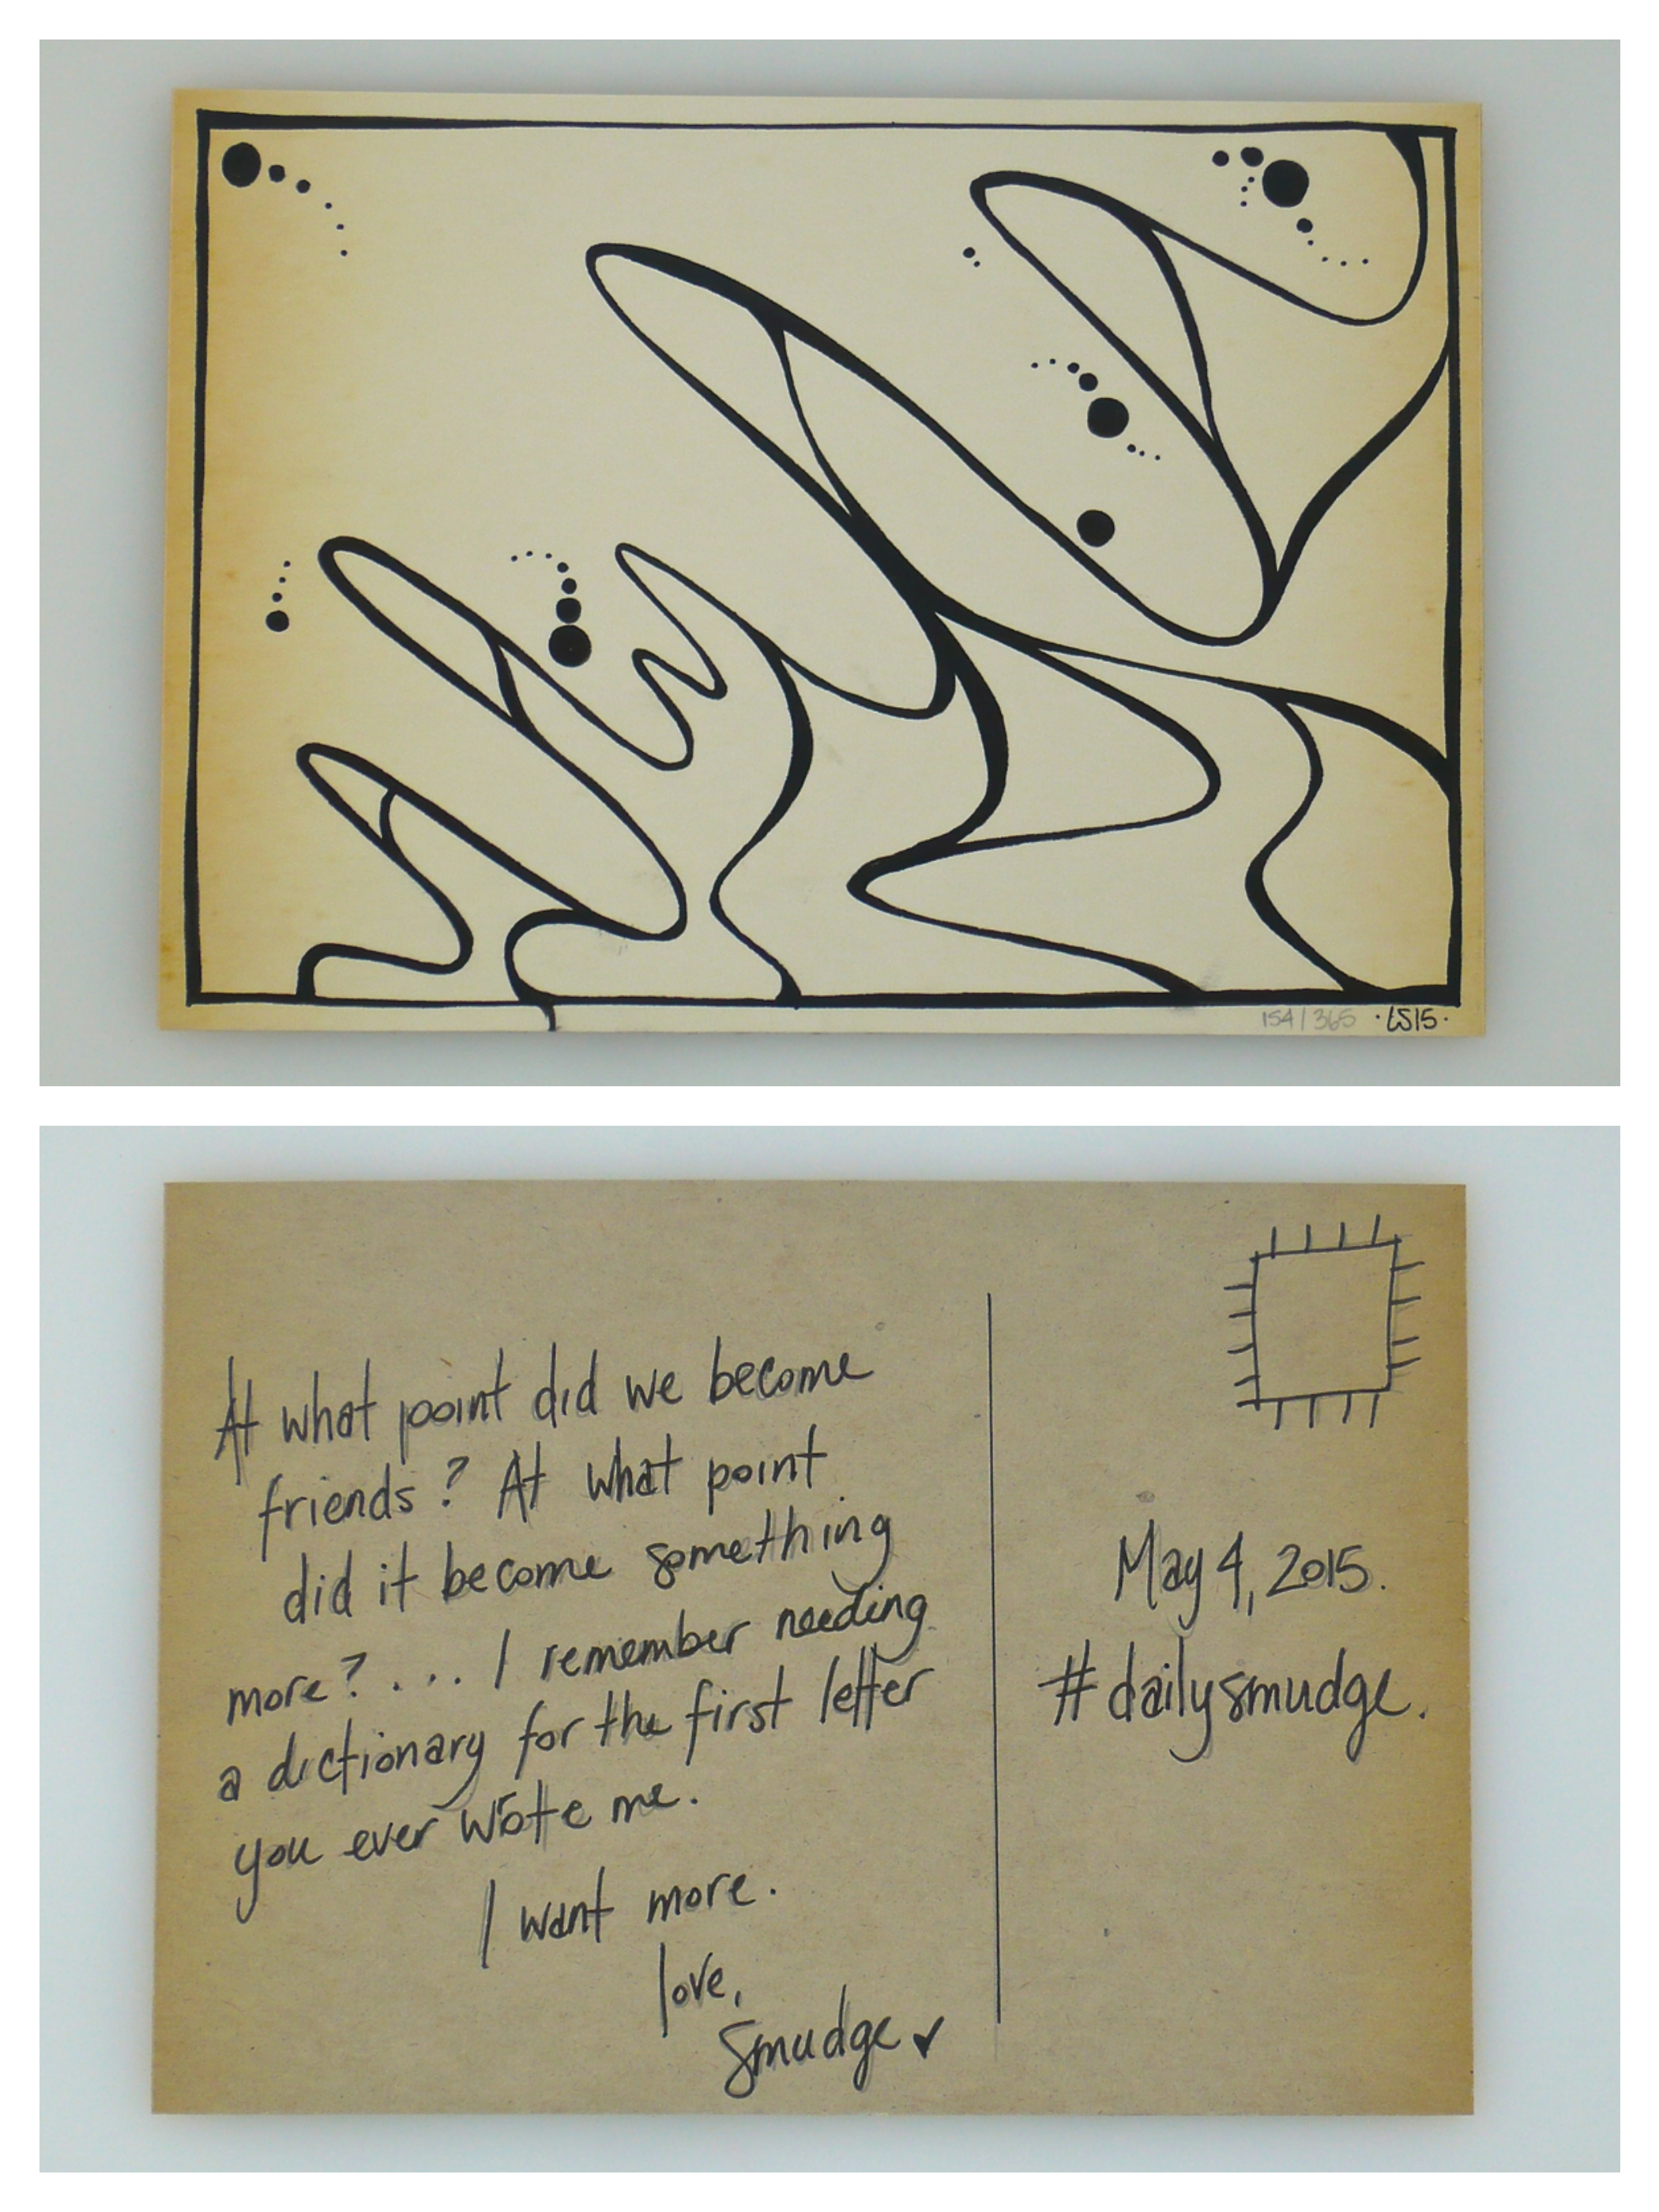 154/365 ·LS15·
At what point did we become
friends? At what point
did it become something
more? ... I remember needing
a dictionary for the first letter
you ever wrote me.
I want more.
love,
Smudge
May 4, 2015.
#dailysmudge.